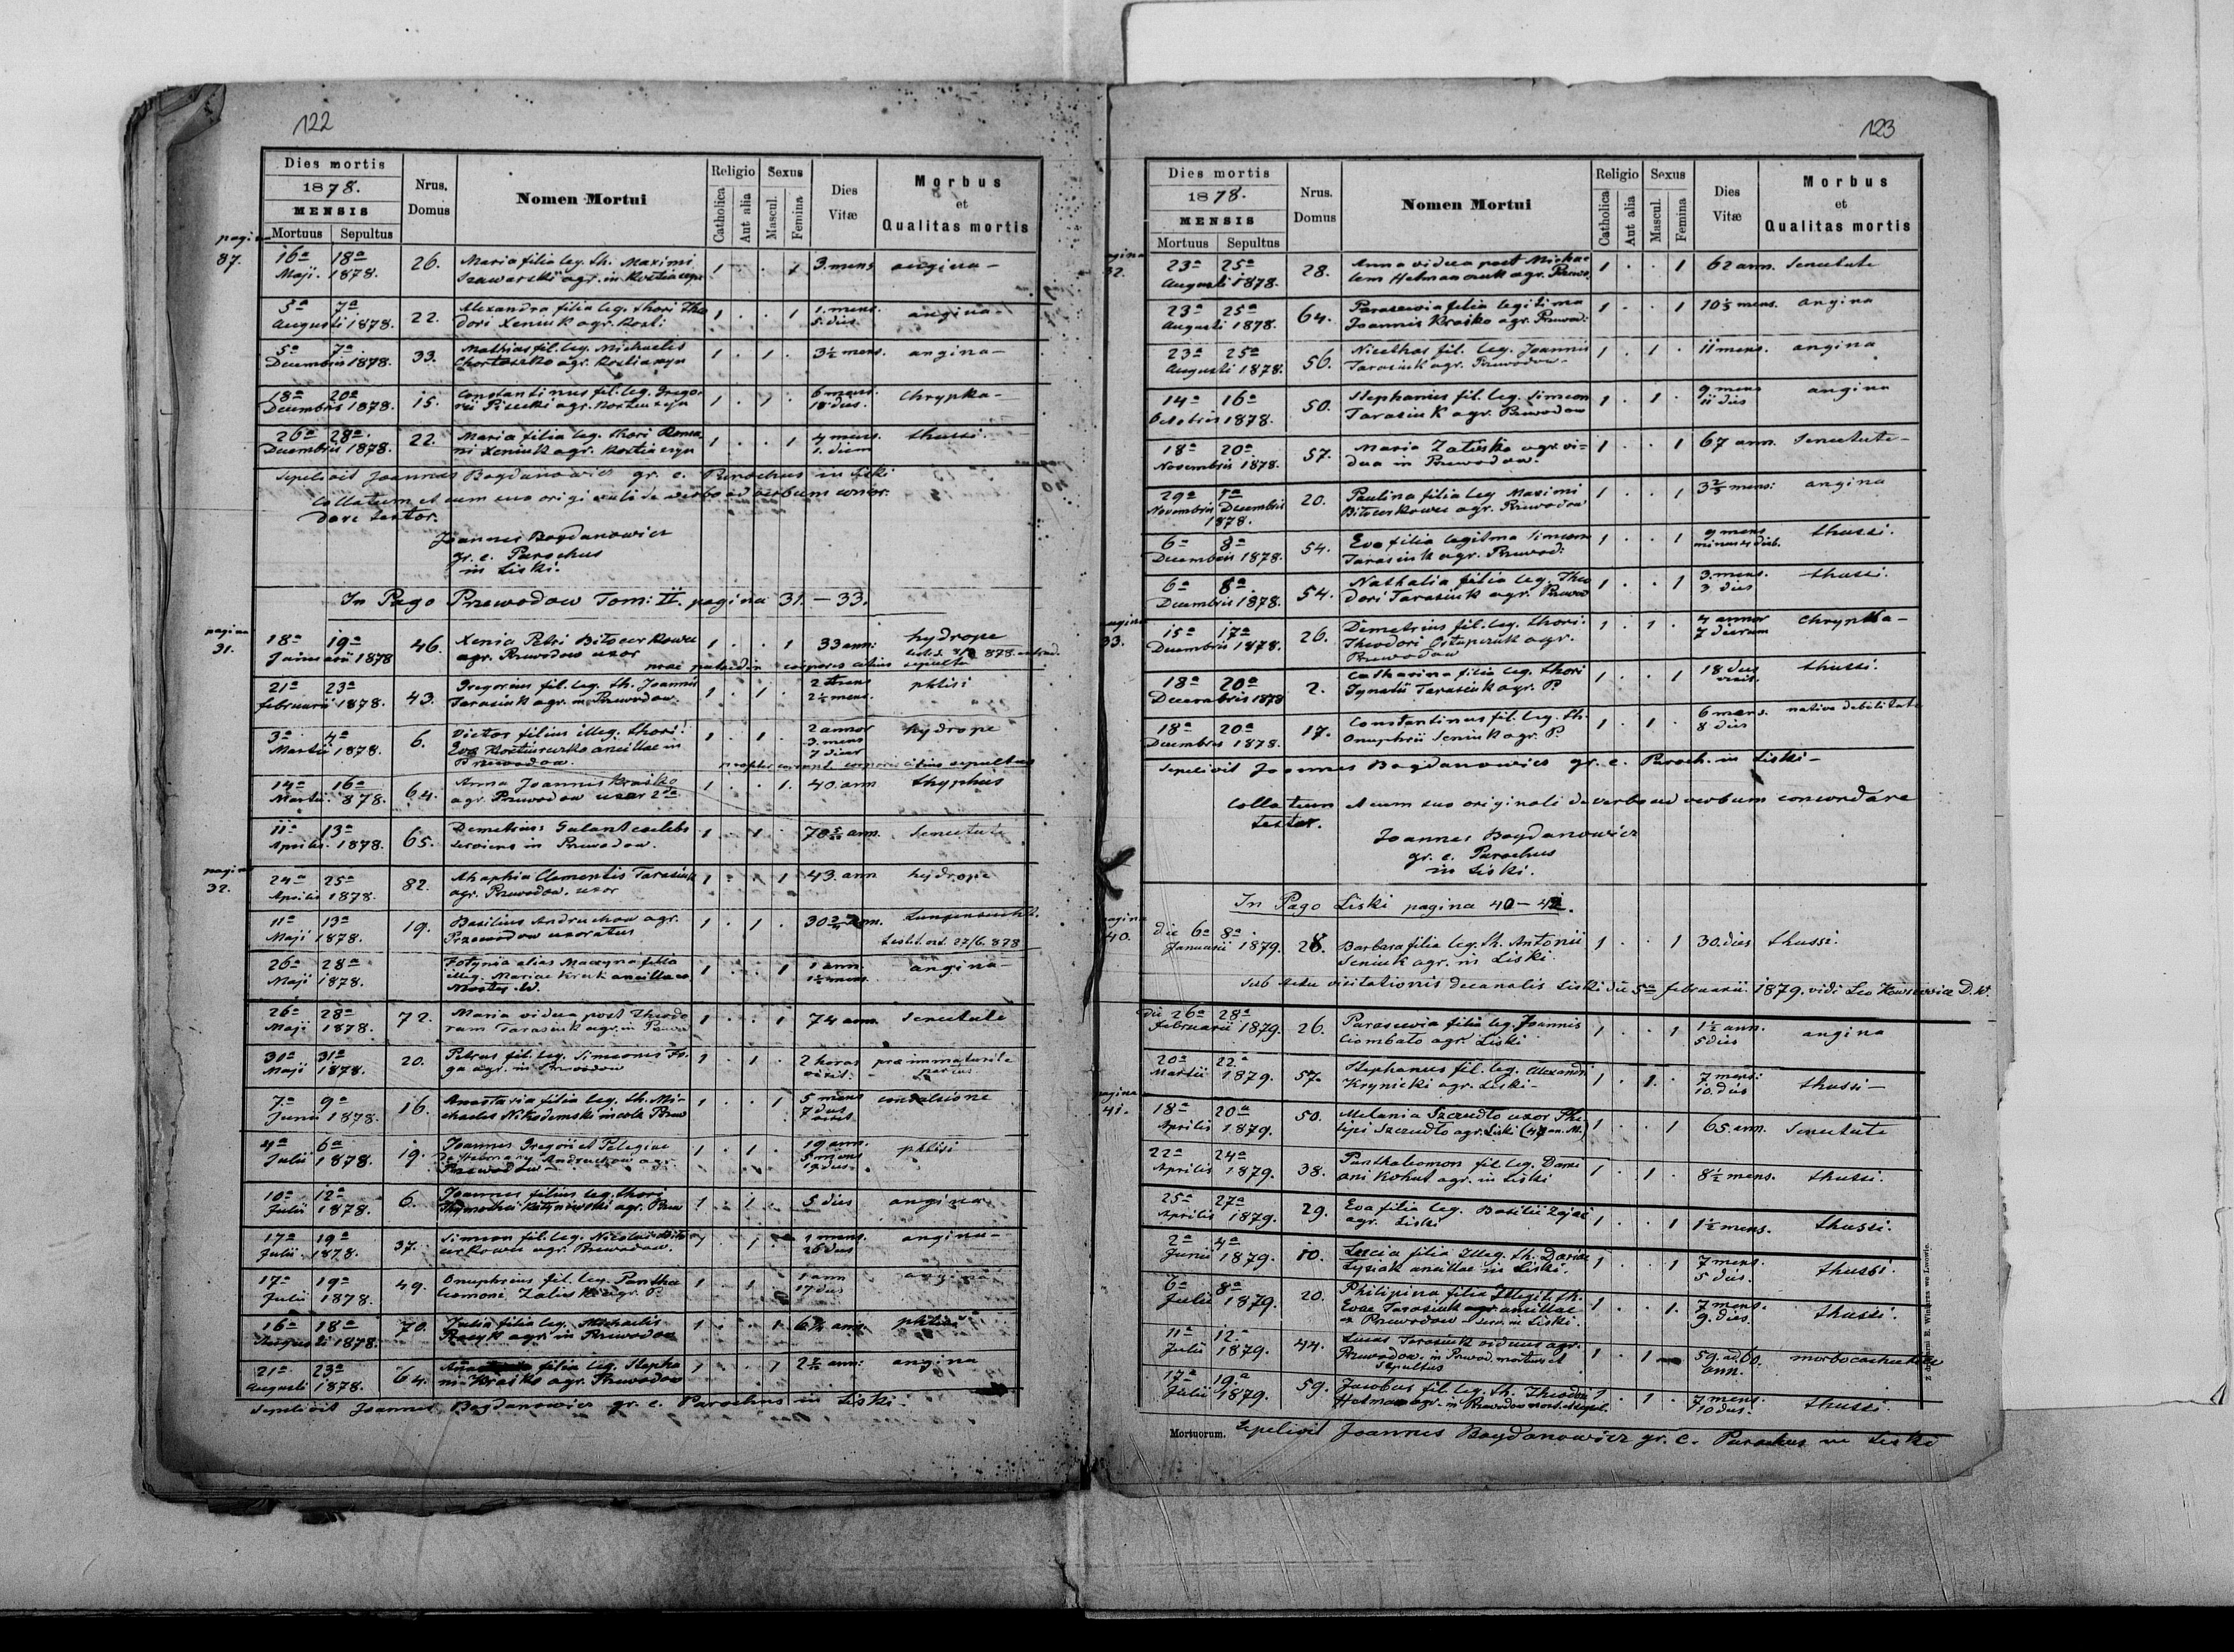 122
Dies mortis
1878.
MENSIS
Mortuus Sepultus
Nrus. Domus
Nomen Mortui
Religio
Catholica
Aut alia
Sexus
Mascul.
Femina
Dies Vitæ
Morbus et Qualitas mortis
pagina 87.
16a 18a Maji. 1878. 26. Maria filia leg. th. Maximi agr. in 1 . . 1 3. mens angina -
5a 7a Augusti 1878. 22. Alexandra filia leg. thori Theodori Xeniuk agr. 1 . . 1 1. mens. 5. dies angina -
5a 7a Decembris 1878. 33. Mathias fil. leg. Michaelis agr. 1 . 1 . 3½ mens. angina -
18a 20a Decembris 1878. 15. Constantinus fil. leg. Gregorii agr. 1 . 1 . 6 mens. 18 dies. Chrypka -
26a 28a Decembris 1878. 22. Maria filia leg. thori Romani Xeniuk agr. 1 . . 1 4 mens. 1. diem thussi.
Sepelivit Joannes Bogdanowicz gr. c. Parochus in Liski
Collatum et cum suo originali de verbo ad verbum concordare testor.
Joannes Bogdanowicz
gr. c. Parochus
in Liski.
In Pago Przewodow Tom: II. pagina 31. - 33.
pagina 31.
18a 19a Januarii 1878 46. Xenia Petri agr. Przewodow uxor 1 . . 1 33 ann: hydrope
corporis citius sepulta
21a 23a februarii 1878. 43. Gregorius fil. leg. th. Joannis Tarasiuk agr. in Przewodow. 1 . 1 . 2½ mens. phtisi
3a 4a Martii 1878. 6. Victor filius illeg. thori Eva ancillae in Przewodow. 1 . 1 . 2 annor 3. mens 7 dier hydrope
propter corporis citius sepultus
14a 16a Martii. 878. 64. Anna Joannis Krasko agr. Przewodow uxor 2da 1 . . 1. 40. ann thyphus
11a 13a Aprilis. 1878. 65. Demetrius Galant caelebs serviens in Przewodow. 1 . 1 . ann. Senectute
pagina 32.
24a 25a Aprilis 1878. 82. Ahaphia Clementis Tarasiuk agr. Przewodow. uxor 1 . . 1 43. ann hydrope
11a 13a Maji 1878. 19. Basilius Andruchow agr. Przewodow uxoratus 1 . 1 .
27/6. 878
26a 28a Maji 1878. Fotynia alias filia illeg. Mariae ancillae 1 . . 1 1 ann. angina -
26a 28a Maji 1878. 72. Maria vidua post Theodorum Tarasiuk agr. in 1 . . 1 74 ann. Senectute
31a Maji 1878. 20. Petrus fil. leg. Simeonis agr. in Przewodow 1 . 1 . 2 horas vixit. praematuritate partus
7a 9a Junii 1878. 16. Anastasia filia leg. th. Michaelis Nikodemski incola 1 . . 1 5 mens 7 dies vixit convulsione
4a 6a Julii 1878. 19. Joannes Gregorii et Pelegiae Andruchow agr. Przewodow - 1 . 1 . 19 ann. phtisi
10a 12a Julii 1878. 6. Joannes filius leg. thori agr. 1 . 1 . 5 dies angina
17a 19a Julii 1878. 37. Simeon fil. leg. Nicolai agr. Przewodow. 1 . 1 . 1 mens. 26 dies angina -
17a 19a Julii 1878. 49. Onuphrius fil. leg. Panthaleemoni Zaliski agr. P. 1 . 1 . 1 ann 17 dies angina
16a 18a Augusti 1878. 70. Julia filia leg. Michaelis agr. in Przewodow 1 . . 1 phtisi
21a 23a Augusti 1878. 64. filia leg. Stephani Krasko agr. Przewodow 1 . . 1 ann: angina
Sepelivit Joannes Bogdanowicz gr. c. Parochus in Liski.
123
Dies mortis
1878.
MENSIS
Mortuus Sepultus
Nrus. Domus
Nomen Mortui
Religio
Catholica
Aut alia
Sexus
Mascul.
Femina
Dies Vitæ
Morbus et Qualitas mortis
pagina 32.
23a 25a Augusti 1878. 28. Anna vidua post Michaelem agr. 1 . . 1 62 ann. Senectute
23a 25a Augusti 1878. 64. Parascevia filia legitima Joannis Krasko agr. 1 . . 1 mens. angina
23a 25a Augusti 1878. 56. Nicethas fil. leg. Joannis Tarasiuk agr. Przewodow - 1 . 1 . 11 mens. angina
14a 16a Octobris 1878. 50. Stephanus fil. leg. Simeon Tarasiuk agr. Przewodow 1 . 1 . 9 mens 11 dies angina
18a 20a Novembris 1878. 57. Maria Zaliska agr. vidua in Przewodow. 1 . . 1 67 ann. Senectute -
29a 1a Novembris Decembris 1878. 20. Paulina filia leg Maximi agr. Przewodow 1 . . 1 mens: angina
6a 8a Decembris 1878. 54. Eva filia legitma Simeon Tarasiuk agr. Przewod: 1 . . 1 9 mens minus 4 dieb. thussi.
6a 8a Decembris 1878. 54. Nathalia filia leg. Theodori Tarasiuk agr. 1 . . 1 3. mens. 3 dies thussi.
pagina 33.
15a 17a Decembris 1878. 26. Demetrius fil. leg. thori. Theodori Ostapczuk agr. Przewodow 1 . 1 . 4 annor 7 dierum Chrypka -
18a 20a Decembris 1878 2. Catharina filia leg. thori Ignatii Tarasiuk agr. P. 1 . . 1 18 dies vixit. thussi.
18a 20a Decembris 1878. 17. Constantinus fil. leg. th. Onuphrii Seniuk agr. P. 1 . 1 . 6 mens. 8 dies nativa debilitate
Sepelivit Joannes Bogdanowicz gr. c. Paroch. in Liski -
Collatum et cum suo originali de verbo ad verbum concordare testor.
Joannes Bogdanowicz
gr. c. Parochus
in Liski.
In Pago Liski pagina 40 - 42.
pagina 40.
die 6a 8a Januarii 1879. 28. Barbara filia leg. th. Antonii Seniuk agr. in Liski. 1 . . 1 30. dies thussi.
Sub actu visitationis decanalis Liski die 5a februarii. 1879. vidi Leo
die 26a 28a februarii 1879. 26. Parascevia filia leg. Joannis Ciombalo agr. Liski 1 . . 1 1½ ann. 5 dies angina
20a 22a Martii 1879. 57. Stephanus fil. leg. Alexandri Krynicki agr. Liski - 1 . 1. . 7 mens: 10. dies thussi -
pagina 41.
18a 20a Aprilis 1879. 50. Melania Szczudlo uxor Philippi Szczudlo agr. Liski 1 . . 1 65. ann. Senectute
22a 24a Aprilis 1879. 38. Panthaleomon fil. leg. Damiani Kohut agr. in Liski 1 . 1 . 8½ mens. thussi.
25a 27a Aprilis 1879. 29. Eva filia leg. Basilii Zajac agr. Liski 1 . . 1 1½ mens. thussi.
2a 4a Junii 1879. 10. Lucia filia Illeg. th. Dariae Lysiak ancillae in Liski. 1 . . 1 7 mens. 5 dies. thussi.
6a 8a Julii 1879. 20. Philipina filia Illegit. th. Evae Tarasiuk agr. ancillae ex Przewodow in Liski. 1 . . 1. 7 mens. 9. dies. thussi.
11a 12a Julii 1879. 44. Lucas Tarasiuk viduus agr. Przewodow. in Przewod. mortuus et sepultus 1 . 1 59. ad 60. ann.
17a 19.a Julii 1879. 59. Jacobus fil. leg. th. Theodori agr. in Przewodow mort. et sepul. 1 . 1 . 7 mens. 10 dies. thussi.
Mortuorum.
Sepelivit Joannes Bogdanowicz gr. c. Parochus in Liski
Z drukarni E. Winiarza we Lwowie.